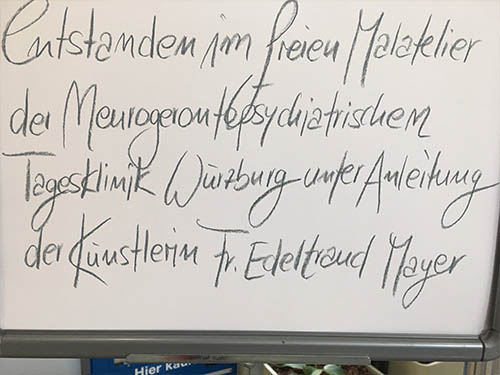 Entstanden im freien Malatelier
der Neurogerontopsychiatrischen
Tagesklinik Würzburg unter Anleitung
der Künstlerin Fr. Edeltraud Mayer
Hier